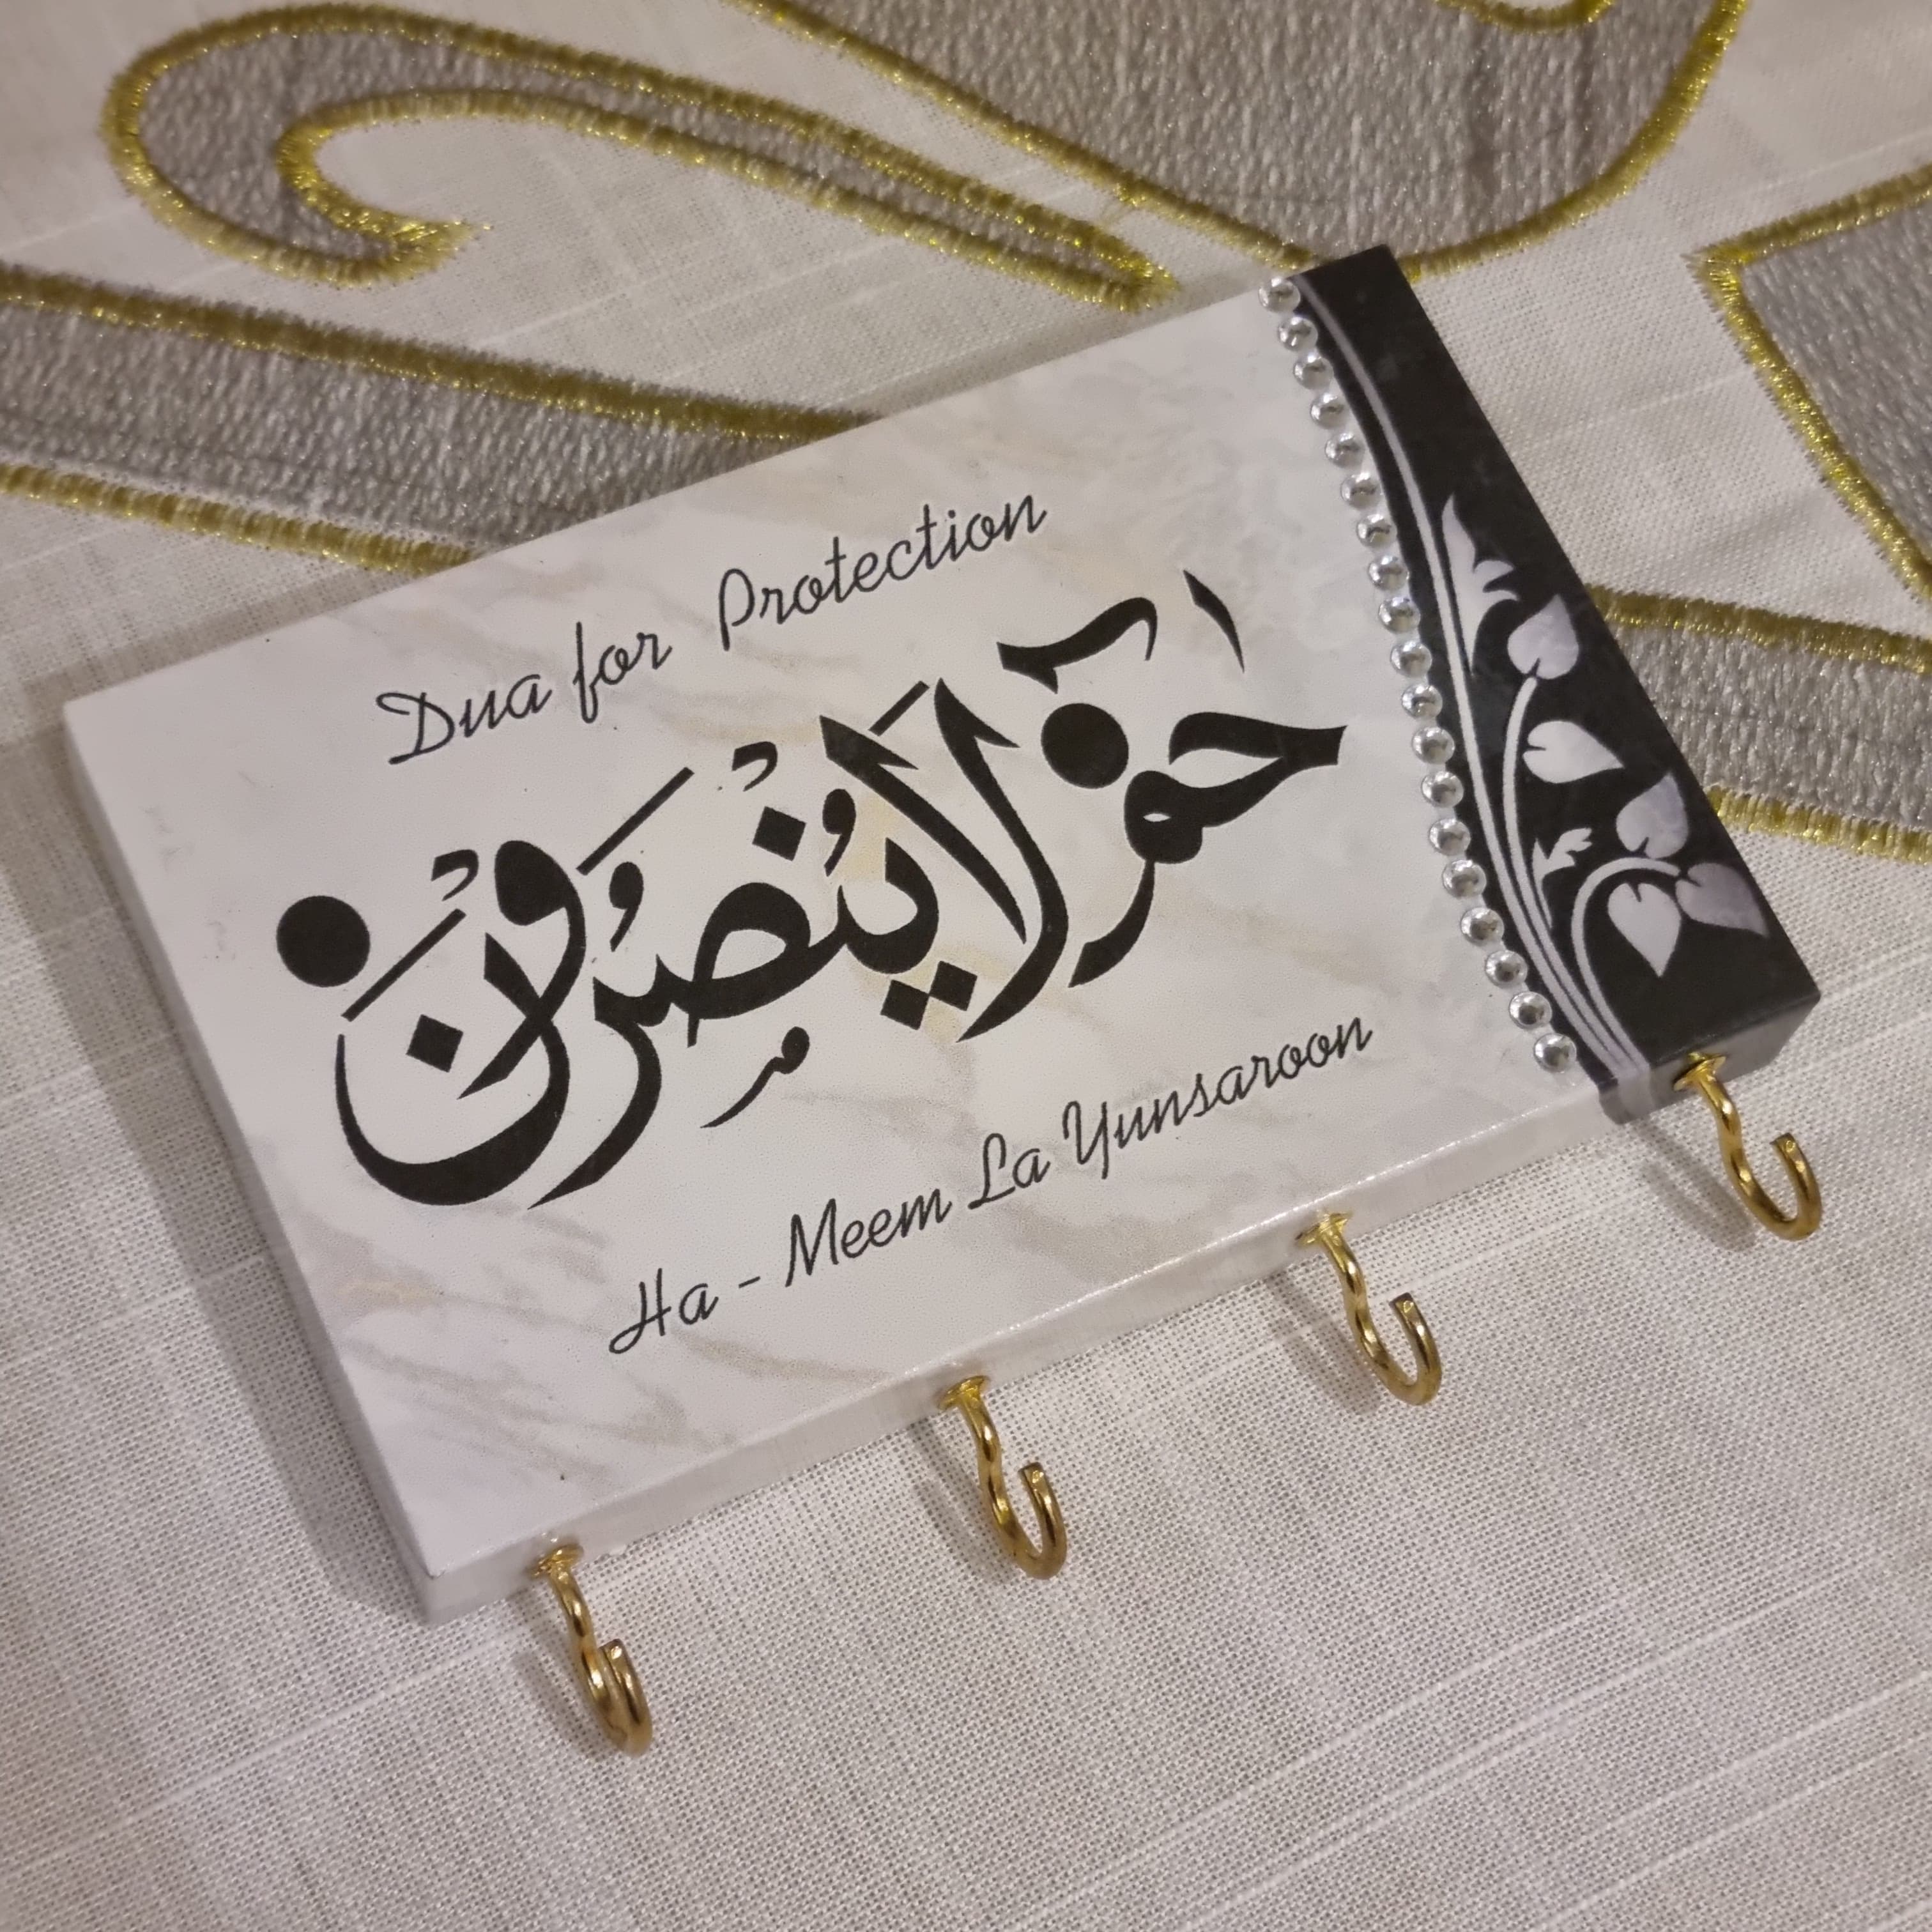 Dua for Protection
حٰمٓ لَا يُنْصَرُوْنَ
Ha - Meem La Yunsaroon